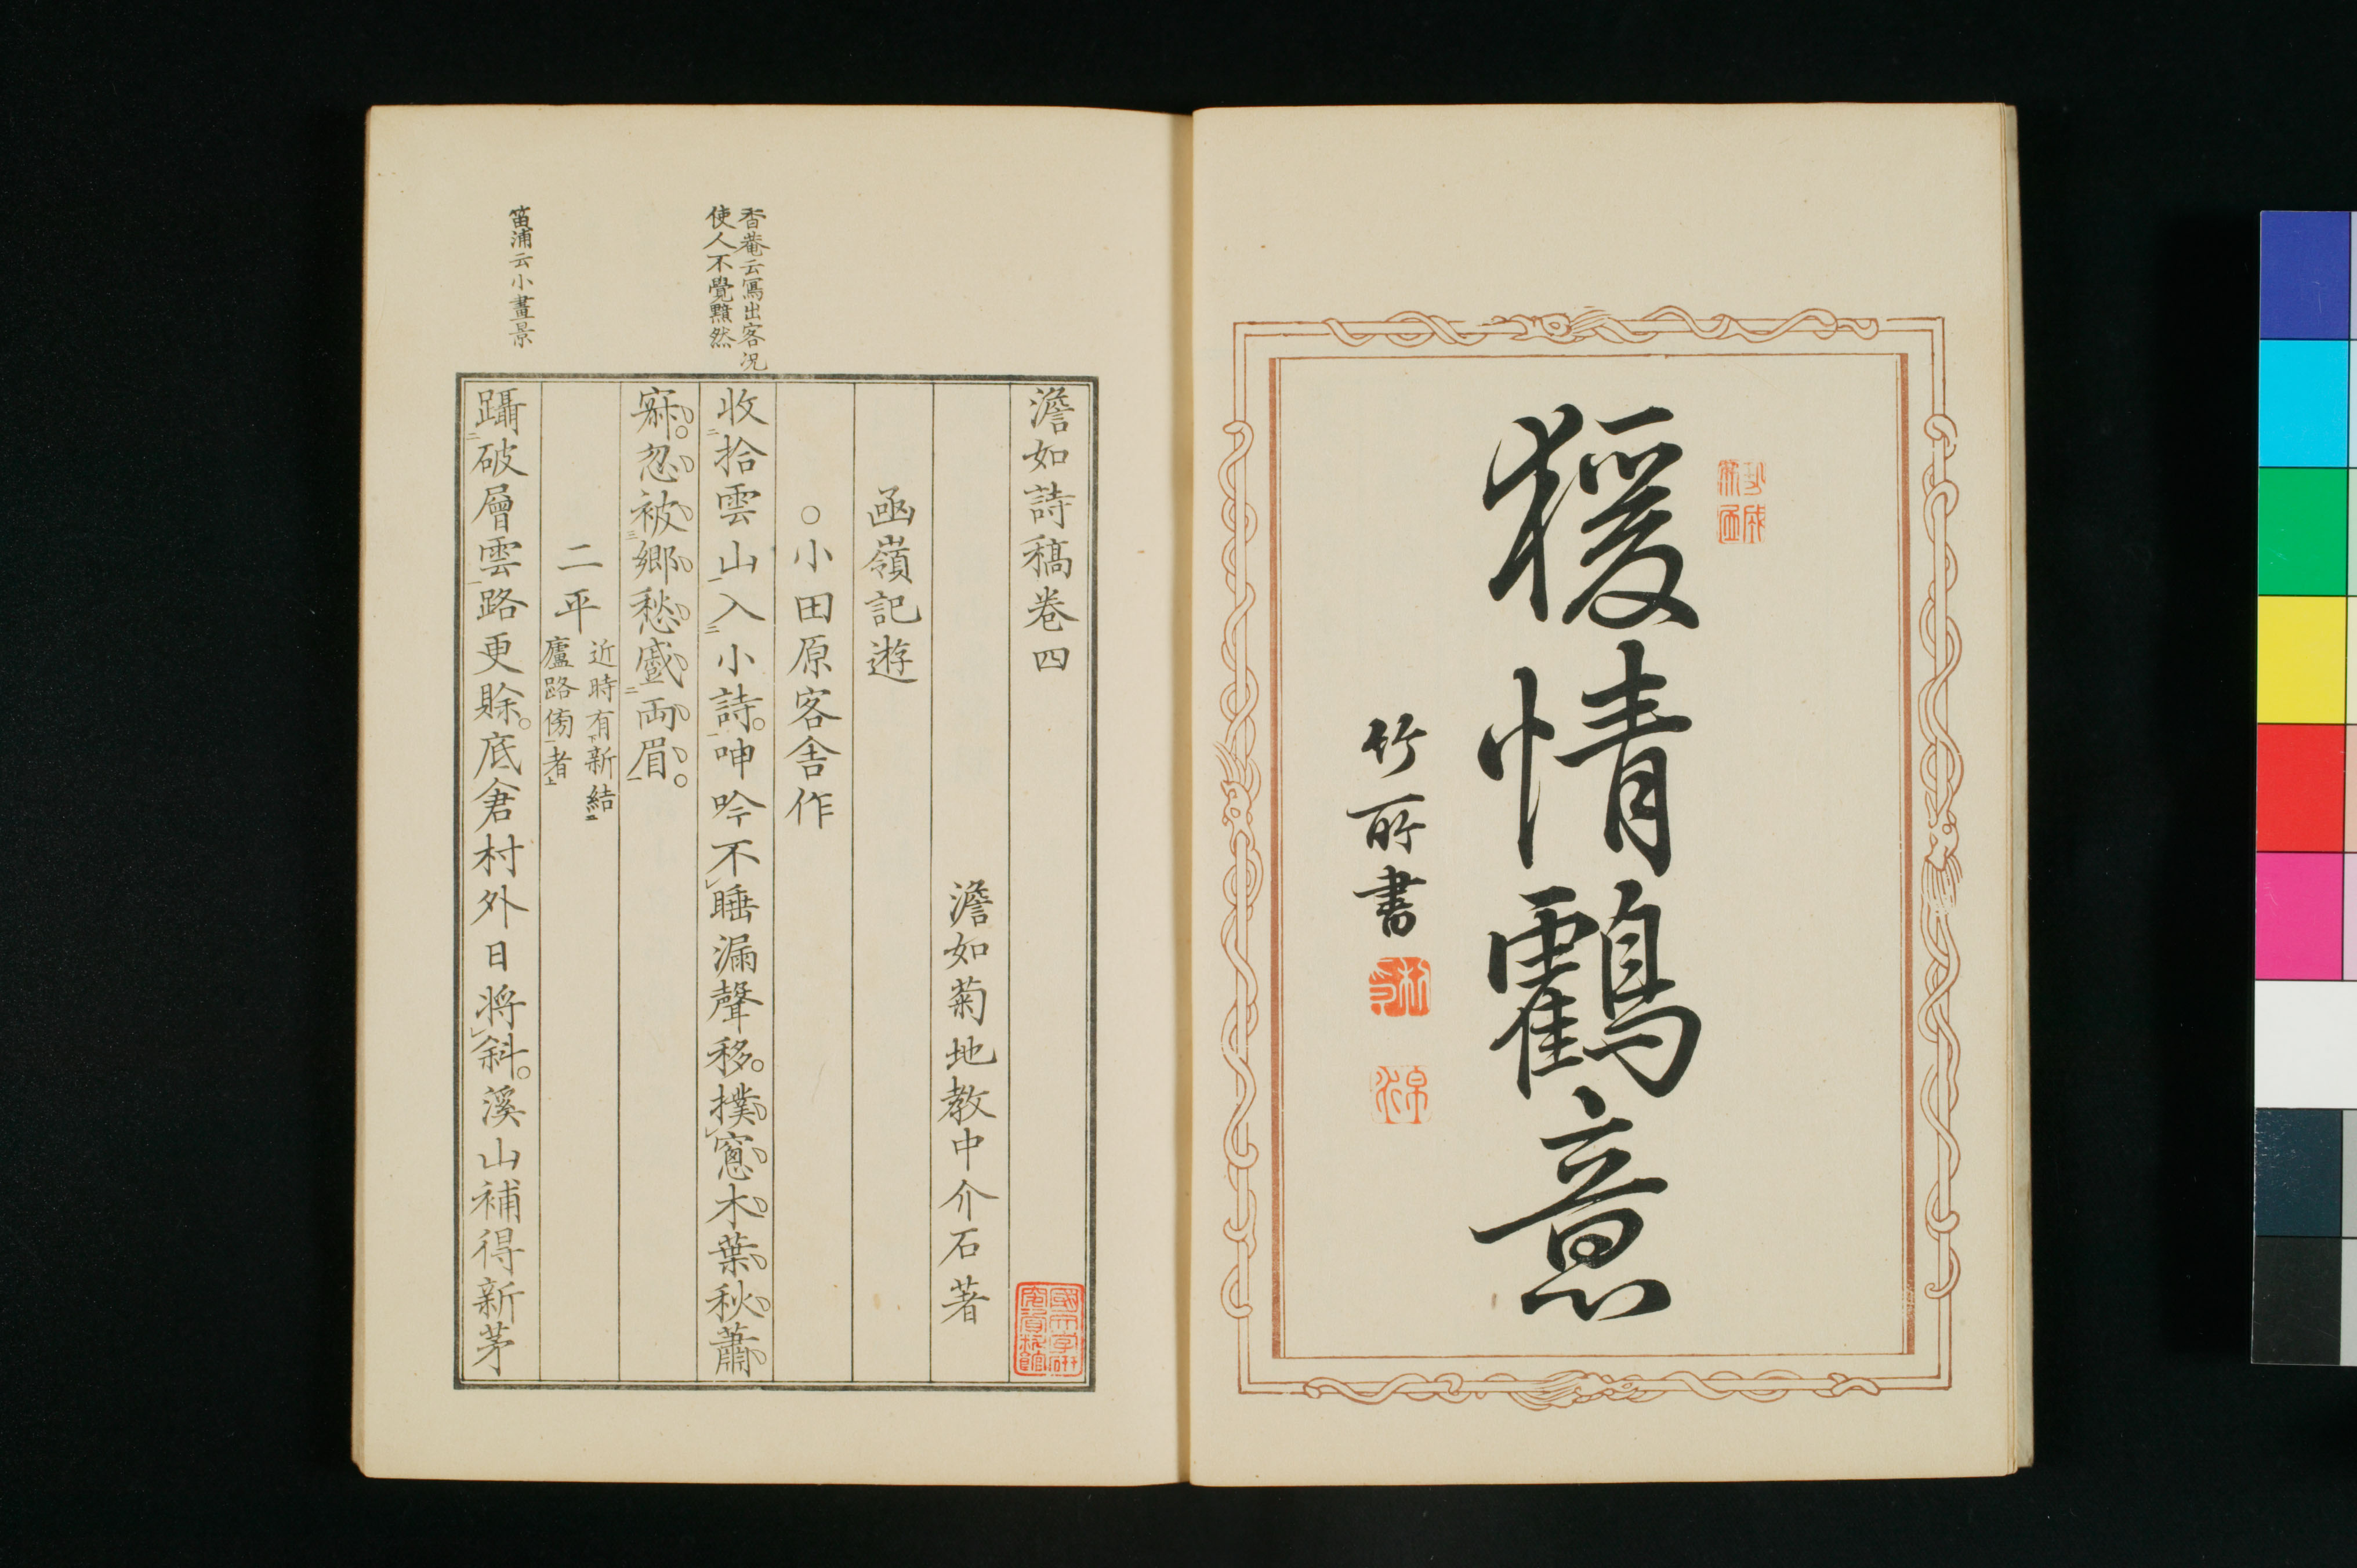 猨情鸖意
竹所書
澹如詩稿卷四
澹如菊地教中介石著
函嶺記遊
○小田原客舎作
收拾雲山入小詩。呻吟不睡漏聲移。撲窻木葉秋蕭
寂。忽被鄉愁蹙両眉。
二平
近時有新結
廬路傍者
躡破層雲路更賖。底倉村外日将斜。溪山補得新茅
香菴云寫出客况
使人不覺黯然
笛浦云小畫景